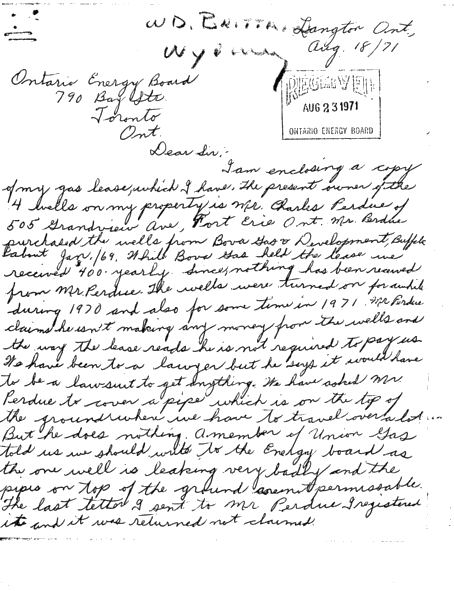 WD. BRITTA.
Wyoming
Langton Ont,
Aug. 18/71
Ontario Energy Board
790 Bay Str.
Toronto
Ont.
RECEIVED
AUG 23 1971
ONTARIO ENERGY BOARD
Dear Sir;-
I am enclosing a copy
of my gas lease, which I have. The present owner of the
4 wells on my property is Mr. Charles Perdue of
505 Grandview Ave, Fort Erie Ont. Mr. Perdue
purchased the wells from Bova Gas & Development, Buffalo
about Jan./69. While Bova Gas held the lease we
received $400. yearly. Since, nothing has been received
from Mr. Perdue. The wells were turned on for awhile
during 1970 and also for some time in 1971. Mr Perdue
claims he isn't making any money from the wells and
the way the lease reads he is not required to pay us.
We have been to a lawyer but he says it would have
to be a lawsuit to get anything. We have asked Mr.
Perdue to cover a pipe which is on the top of
the ground where we have to travel over a lot....
But he does nothing. A member of Union Gas
told us we should write to the Energy board as
the one well is leaking very badly and the
pipes on top of the ground permissable.
The last letter I sent to Mr Perdue I registered
it and it was returned not claimed.